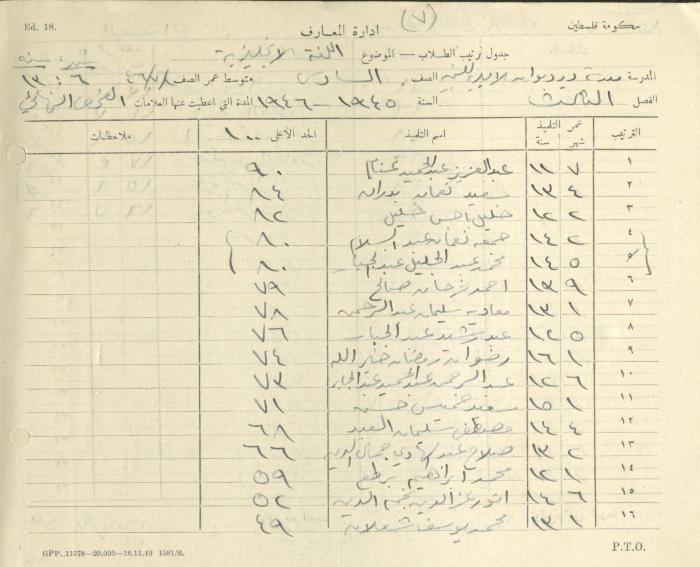 (٧)
Ed. 18.
ادارة المعارف
حكومة فلسطين
جدول ترتيب الطلاب — الموضوع اللغة الانجليزية
المدرسة مدرسة الصف السادس متوسط عمر الصف شهر ٦ : سنة ١٣
الفصل الثالث السنة ١٩٤٥ - ١٩٤٦ المدة التي اعطيت عنها العلامات الفحص النهائي
الترتيب عمر التلميذ شهر سنة اسم التلميذ الحد الأعلى ١٠٠ ملاحظات
١ ٧ ١١ عبد العزيز عبد الحميد غنام ٩٠
٢ ٤ ١٣ سعيد نعمان بدران ٨٤
٣ ٢ ١٢ خليل حسن خليل ٨٢
٤ ٢ ١٤ جمعه نعمان عبد السلام ٨٠
٥ ٥ ١٤ محمد عبد الجليل عبد الجبار ٨٠
٦ ٩ ١٣ احمد فرحان صالح ٧٩
٧ ١ ١٣ معاويه سليمان عبد الرحمن ٧٨
٨ ٥ ١٢ عبد رشيد عبد الجبار ٧٦
٩ ١ ١٦ رضوان رمضان خير الله ٧٤
١٠ ٦ ١٢ عبد الرحمن عبد الحميد عبد الجابر ٧٣
١١ ١ ١٥ سعيد خميس حسن ٧١
١٢ ٤ ١٤ مصطفى سليمان العبد ٦٨
١٣ ٢ ١٣ صلاح عبد الهادي جمال الدين ٦٦
١٤ ١ ١٢ محمد ابراهيم ٥٩
١٥ ٦ ١٤ انور عز الدين نجم الدين ٥٢
١٦ ١ ١٣ محمد يوسف شعلان ٤٩
GPP. 11578—20,000—18.11.40 1581/S.
P.T.O.